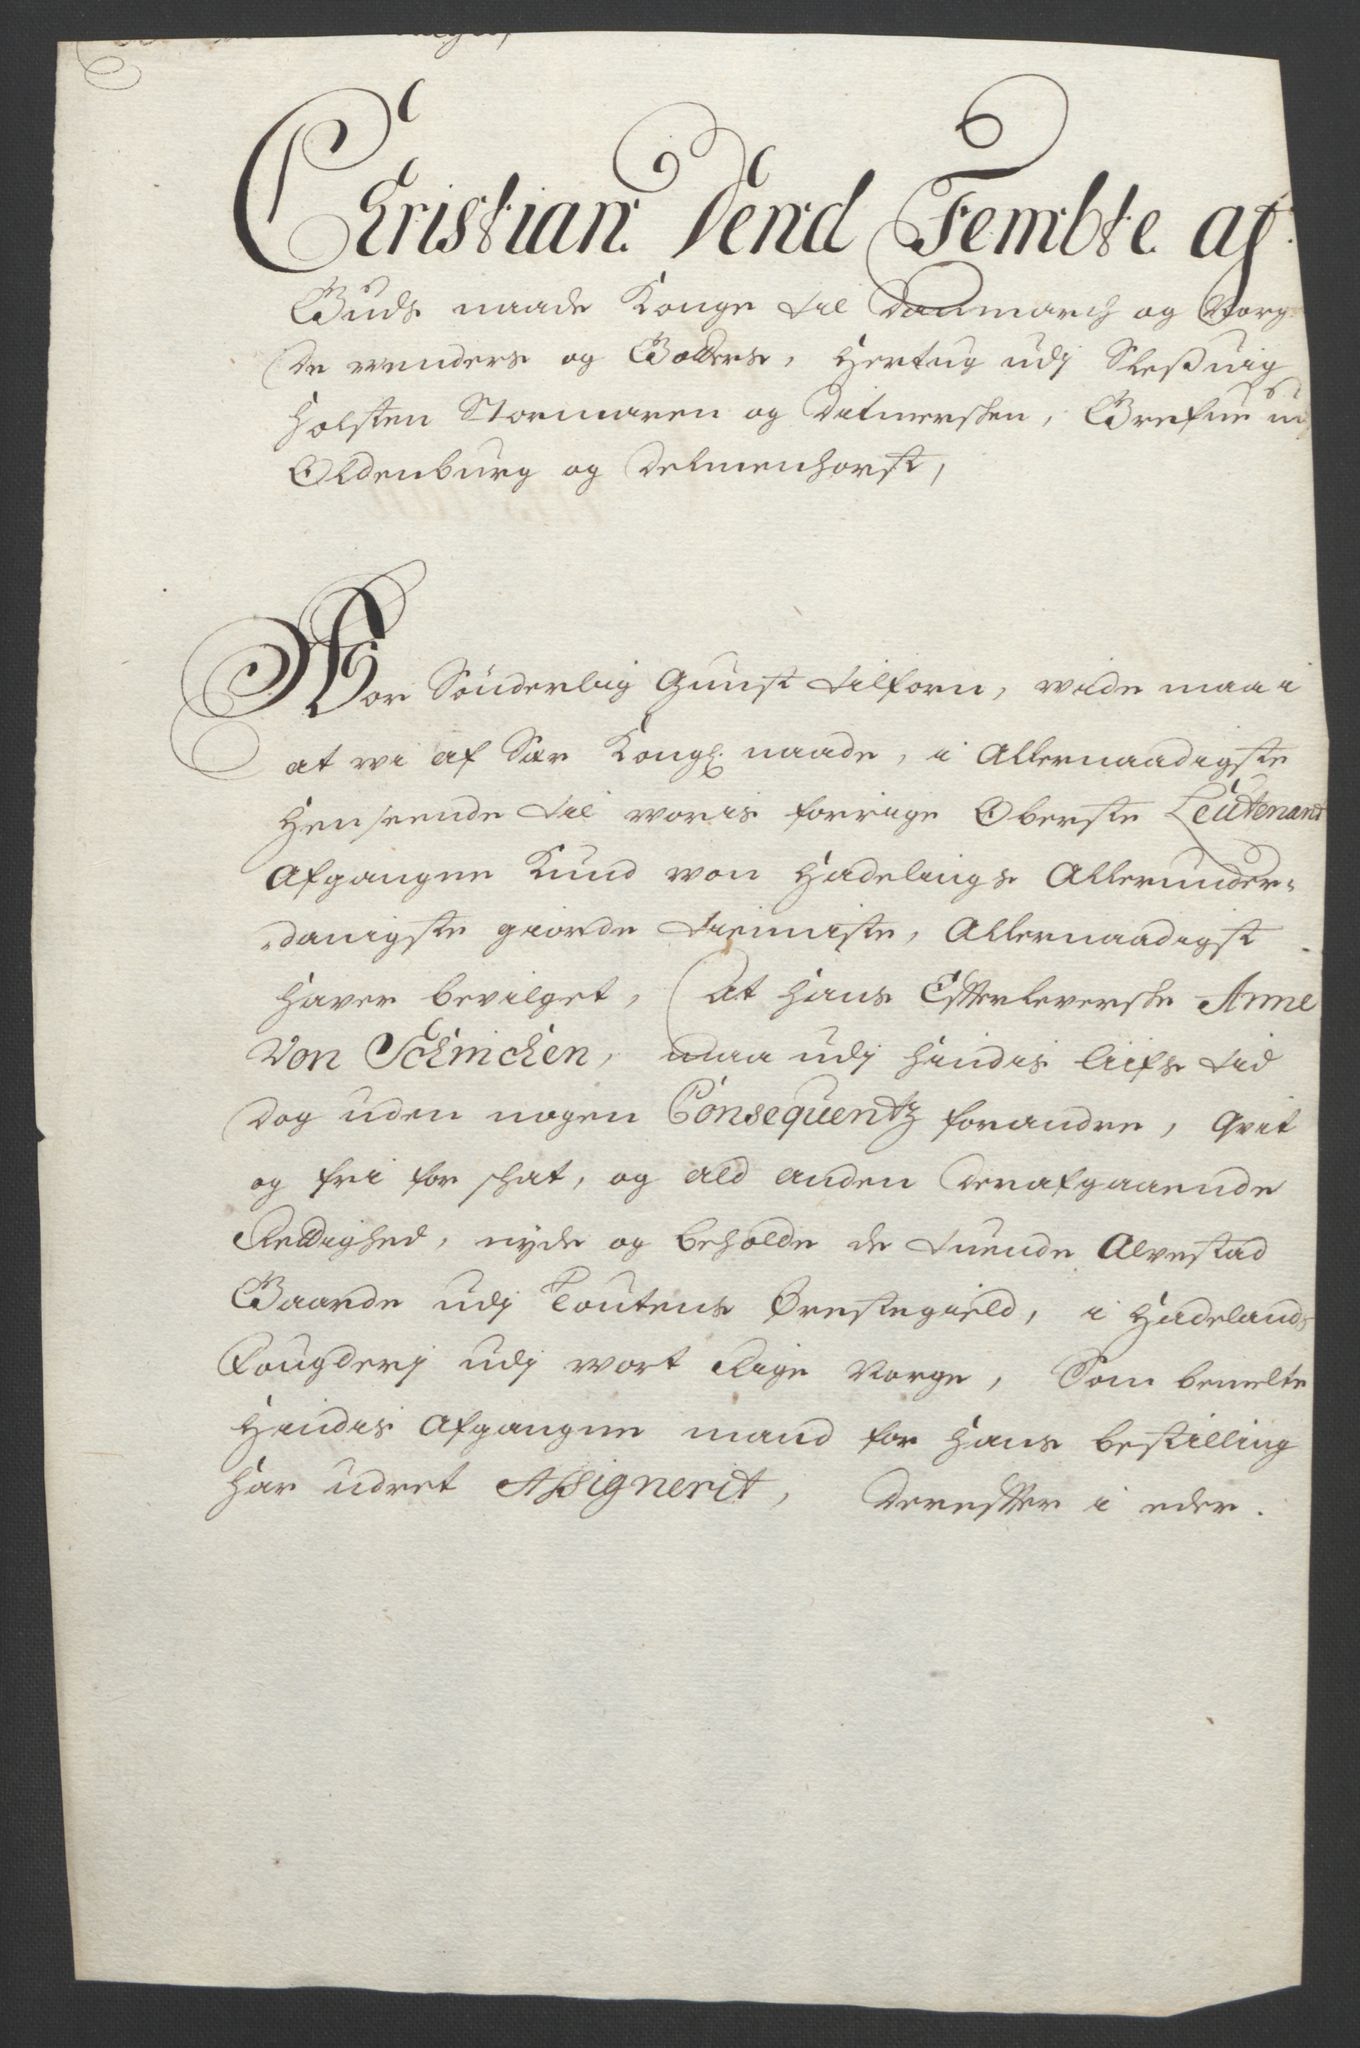 Christian Dend Fembte af
Guds naade Konge til Danmarch og Norg
De wenders og Gotters, Hertug udj Sleßuig
Holsten Stormaren og Ditmersken, Grefue u
Oldenburg og Delmenhorst,
Vor Sönderlig Gunst tilforn, wide maa i
at wi af Sær Kongl. naade, i Allernaadigste
Henseende til woris forrige Oberste Leutenant
Afgangne Knud won Hadelings Allerunder-
danigste giorde tienniste, Allernaadigst
hafver bevilget, At hans Efterleverske Anne
Von Schinchen, maa udj hindis liifs tid
dog uden nogen Consequentz forandre, Qvit
og fri for schat, og ald anden derafgaaende
Rettighed, nyde og beholde de tuende Alvestad
Gaarde udj Toutens Prestegield, i Hadelands
Fougderj udj wort Rige Norge, Som bemelte
Hindis Afgangne mand for hans bestilling
har udret Assignerit, Derefter i eder.